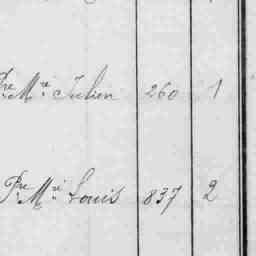 Pre Mie Julien 260 1
Pre Mie Louis 837 2